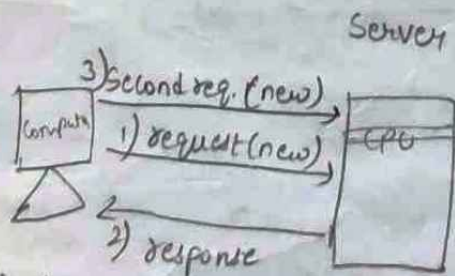 Server
3) Second req. (new)
Computer
1) request (new)
CPU
2) response